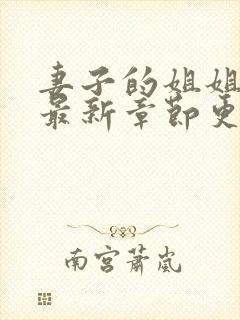 妻子的姐姐
最新章节更
南宫萧岚